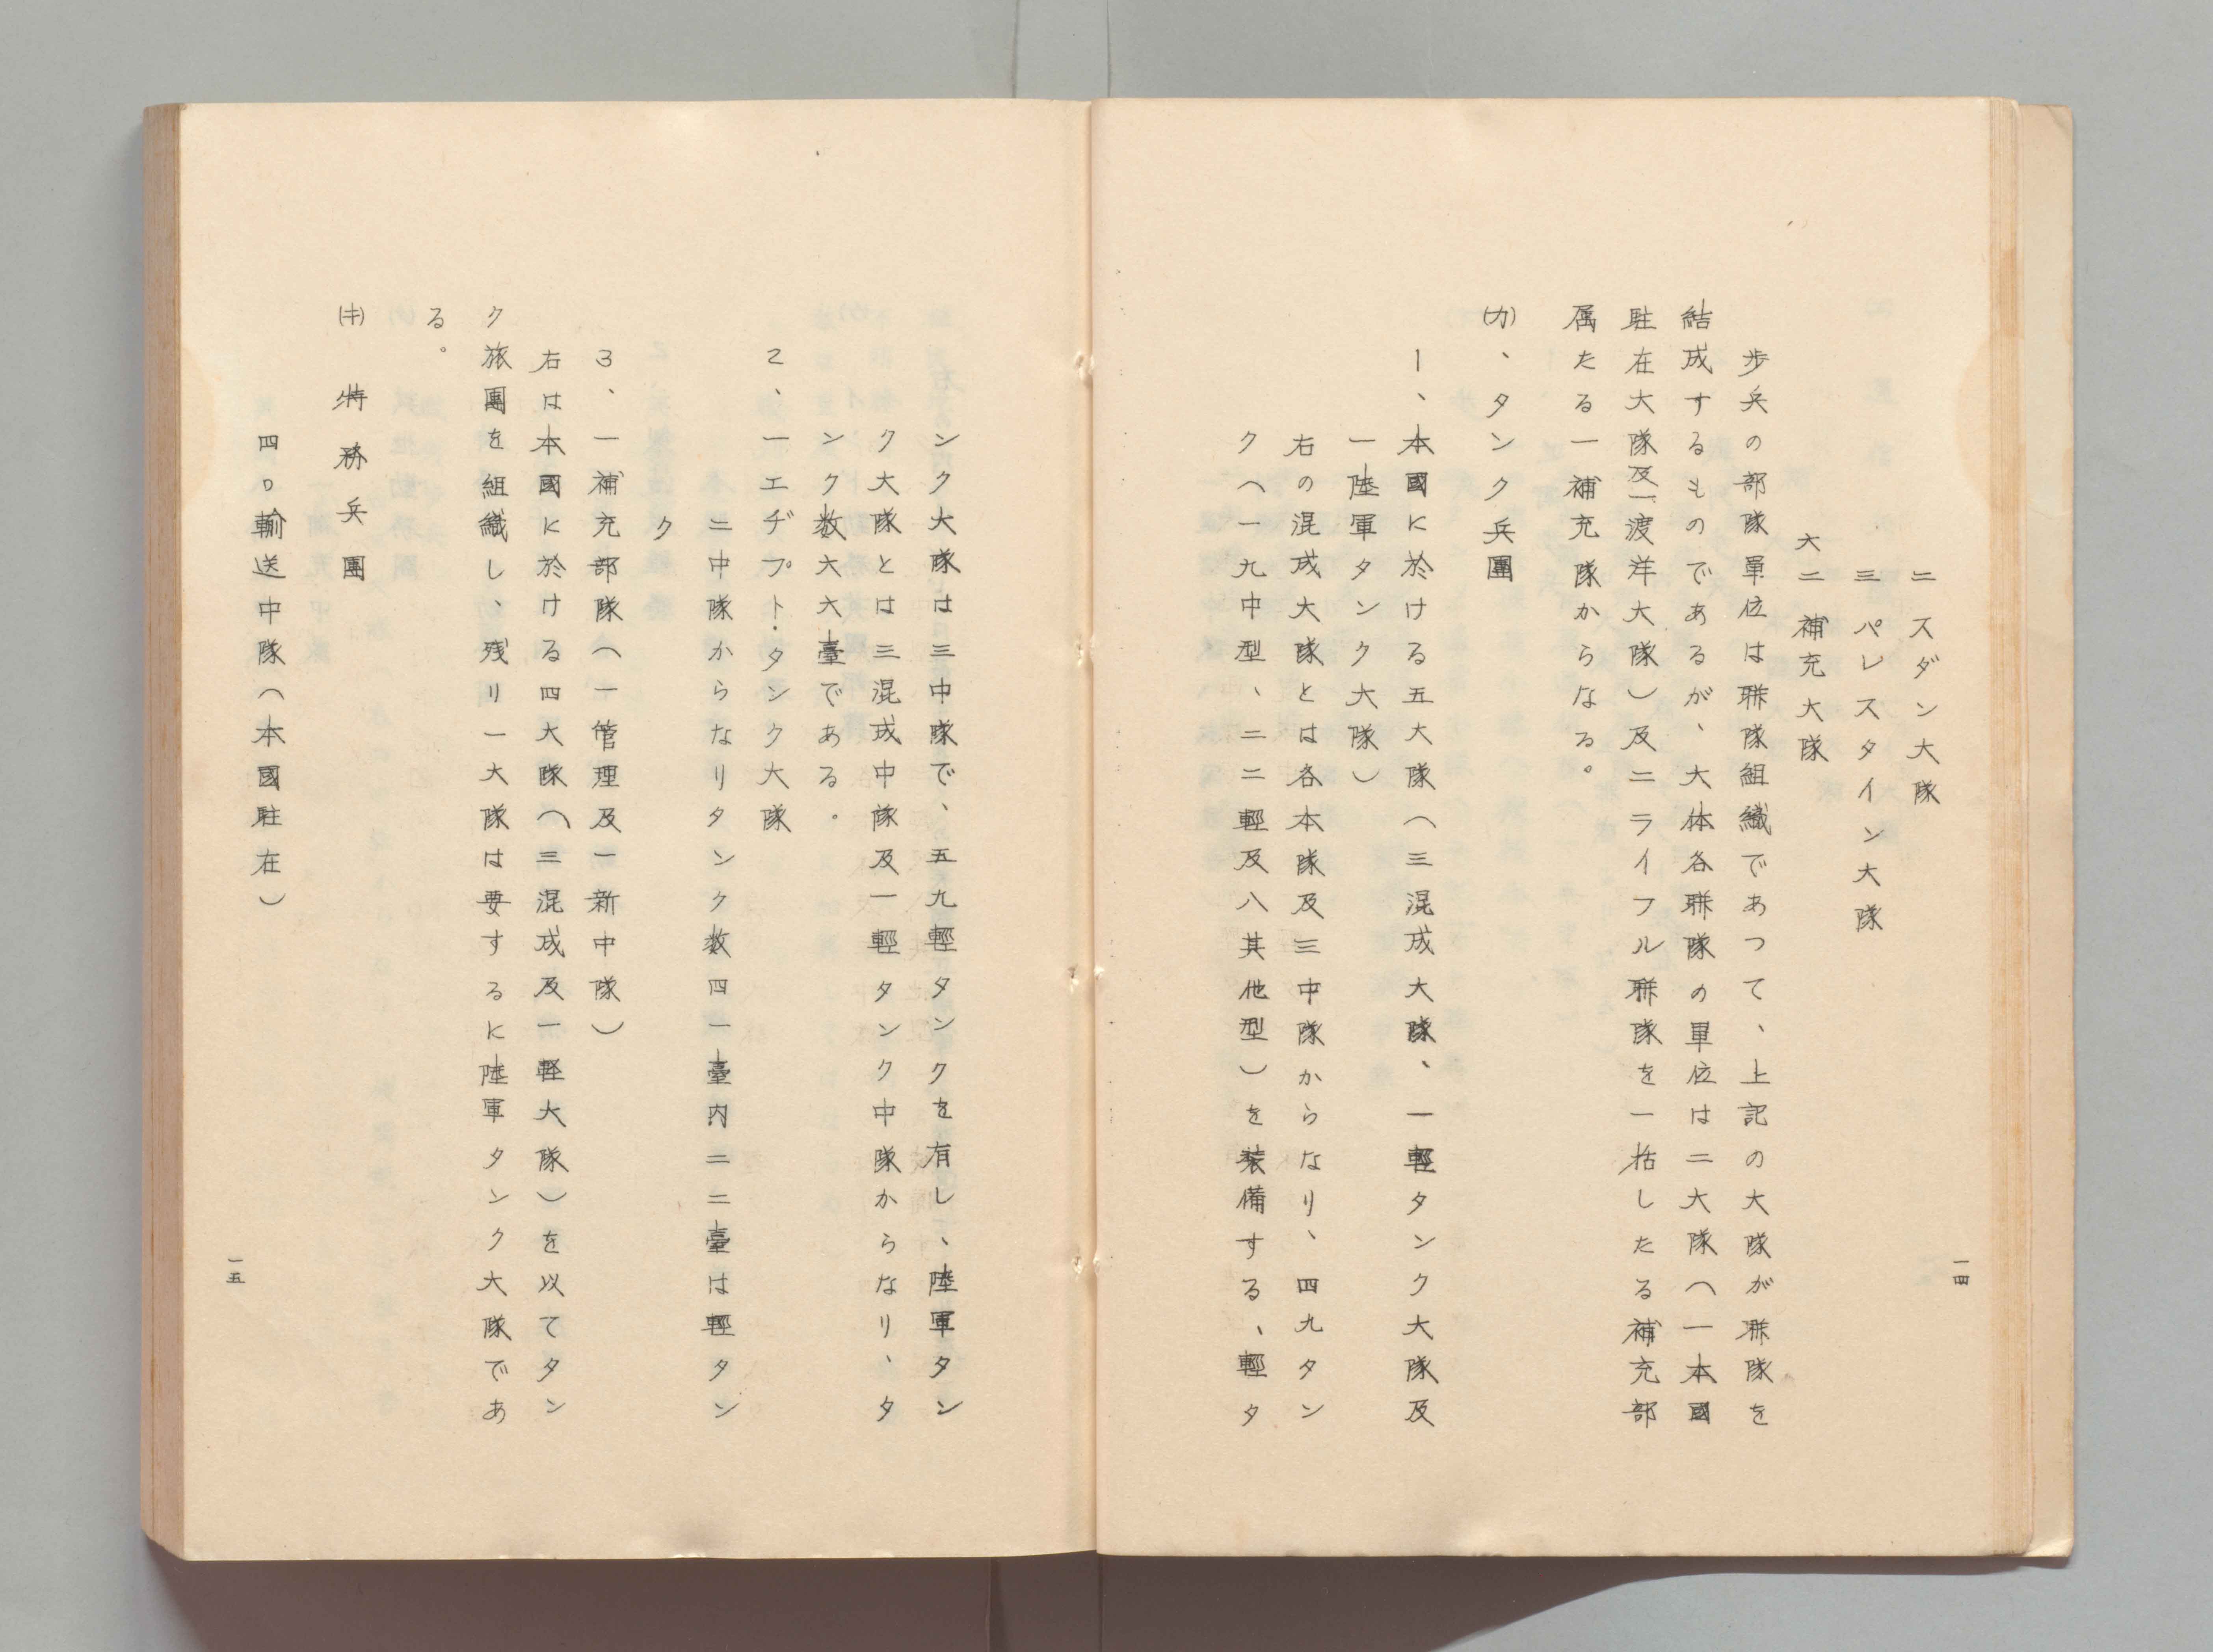 二スダン大隊
三パレスタイン大隊
六二補充大隊
歩兵の部隊單位は聯隊組織であつて、上記の大隊が聯隊を
結成するものであるが、大体各聯隊の單位は二大隊（一本國
駐在大隊及一渡洋大隊）及二ライフル聯隊を一括したる補充部
属たる一補充隊からなる。
(カ)、タンク兵團
1、本國に於ける五大隊（三混成大隊、一輕タンク大隊及
一陸軍タンク大隊）
右の混成大隊とは各本隊及三中隊からなり、四九タン
ク（一九中型、二二輕及八其他型）を装備する、輕タ
一四
ンク大隊は三中隊で、五九輕タンクを有し、陸軍タン
ク大隊とは三混成中隊及一輕タンク中隊からなり、タ
ンク数六六臺である。
2、一エヂプト・タンク大隊
二中隊からなりタンク数四一臺内二二臺は輕タン
ク
3、一補充部隊（一管理及一新中隊）
右は本國に於ける四大隊（三混成及一軽大隊）を以てタン
ク旅團を組織し、残り一大隊は要するに陸軍タンク大隊であ
る。
(キ) 特務兵團
四〇輸送中隊（本國駐在）
一五